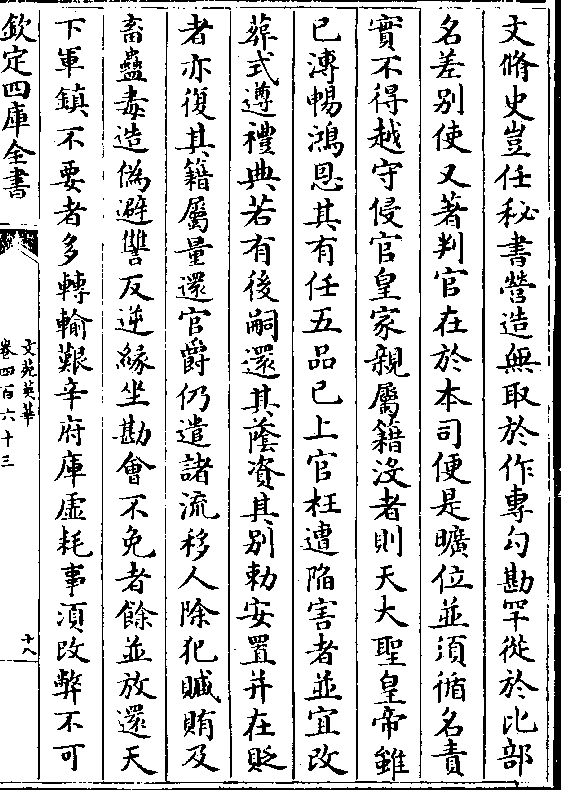 文脩史豈任秘書營造無取於作專勾勘罕從於比部
名差别使又著判官在於本司便是曠位並須循名責
實不得越守侵官皇家親屬籍沒者則天大聖皇帝雖
已溥暢鴻恩其有任五品已上官枉遭陷害者並宜改
葬式遵禮典若有後嗣還其蔭資其别勅安置并在貶
者亦復其籍屬量還官爵仍遣諸流移人除犯贓賄及
畜蠱毒造偽避讐反逆緣坐勘會不免者餘並放還天
下軍鎮不要者多轉輸艱辛府庫虛耗事須改弊不可
欽定四庫全書
文苑英華
卷四百六十三
十八